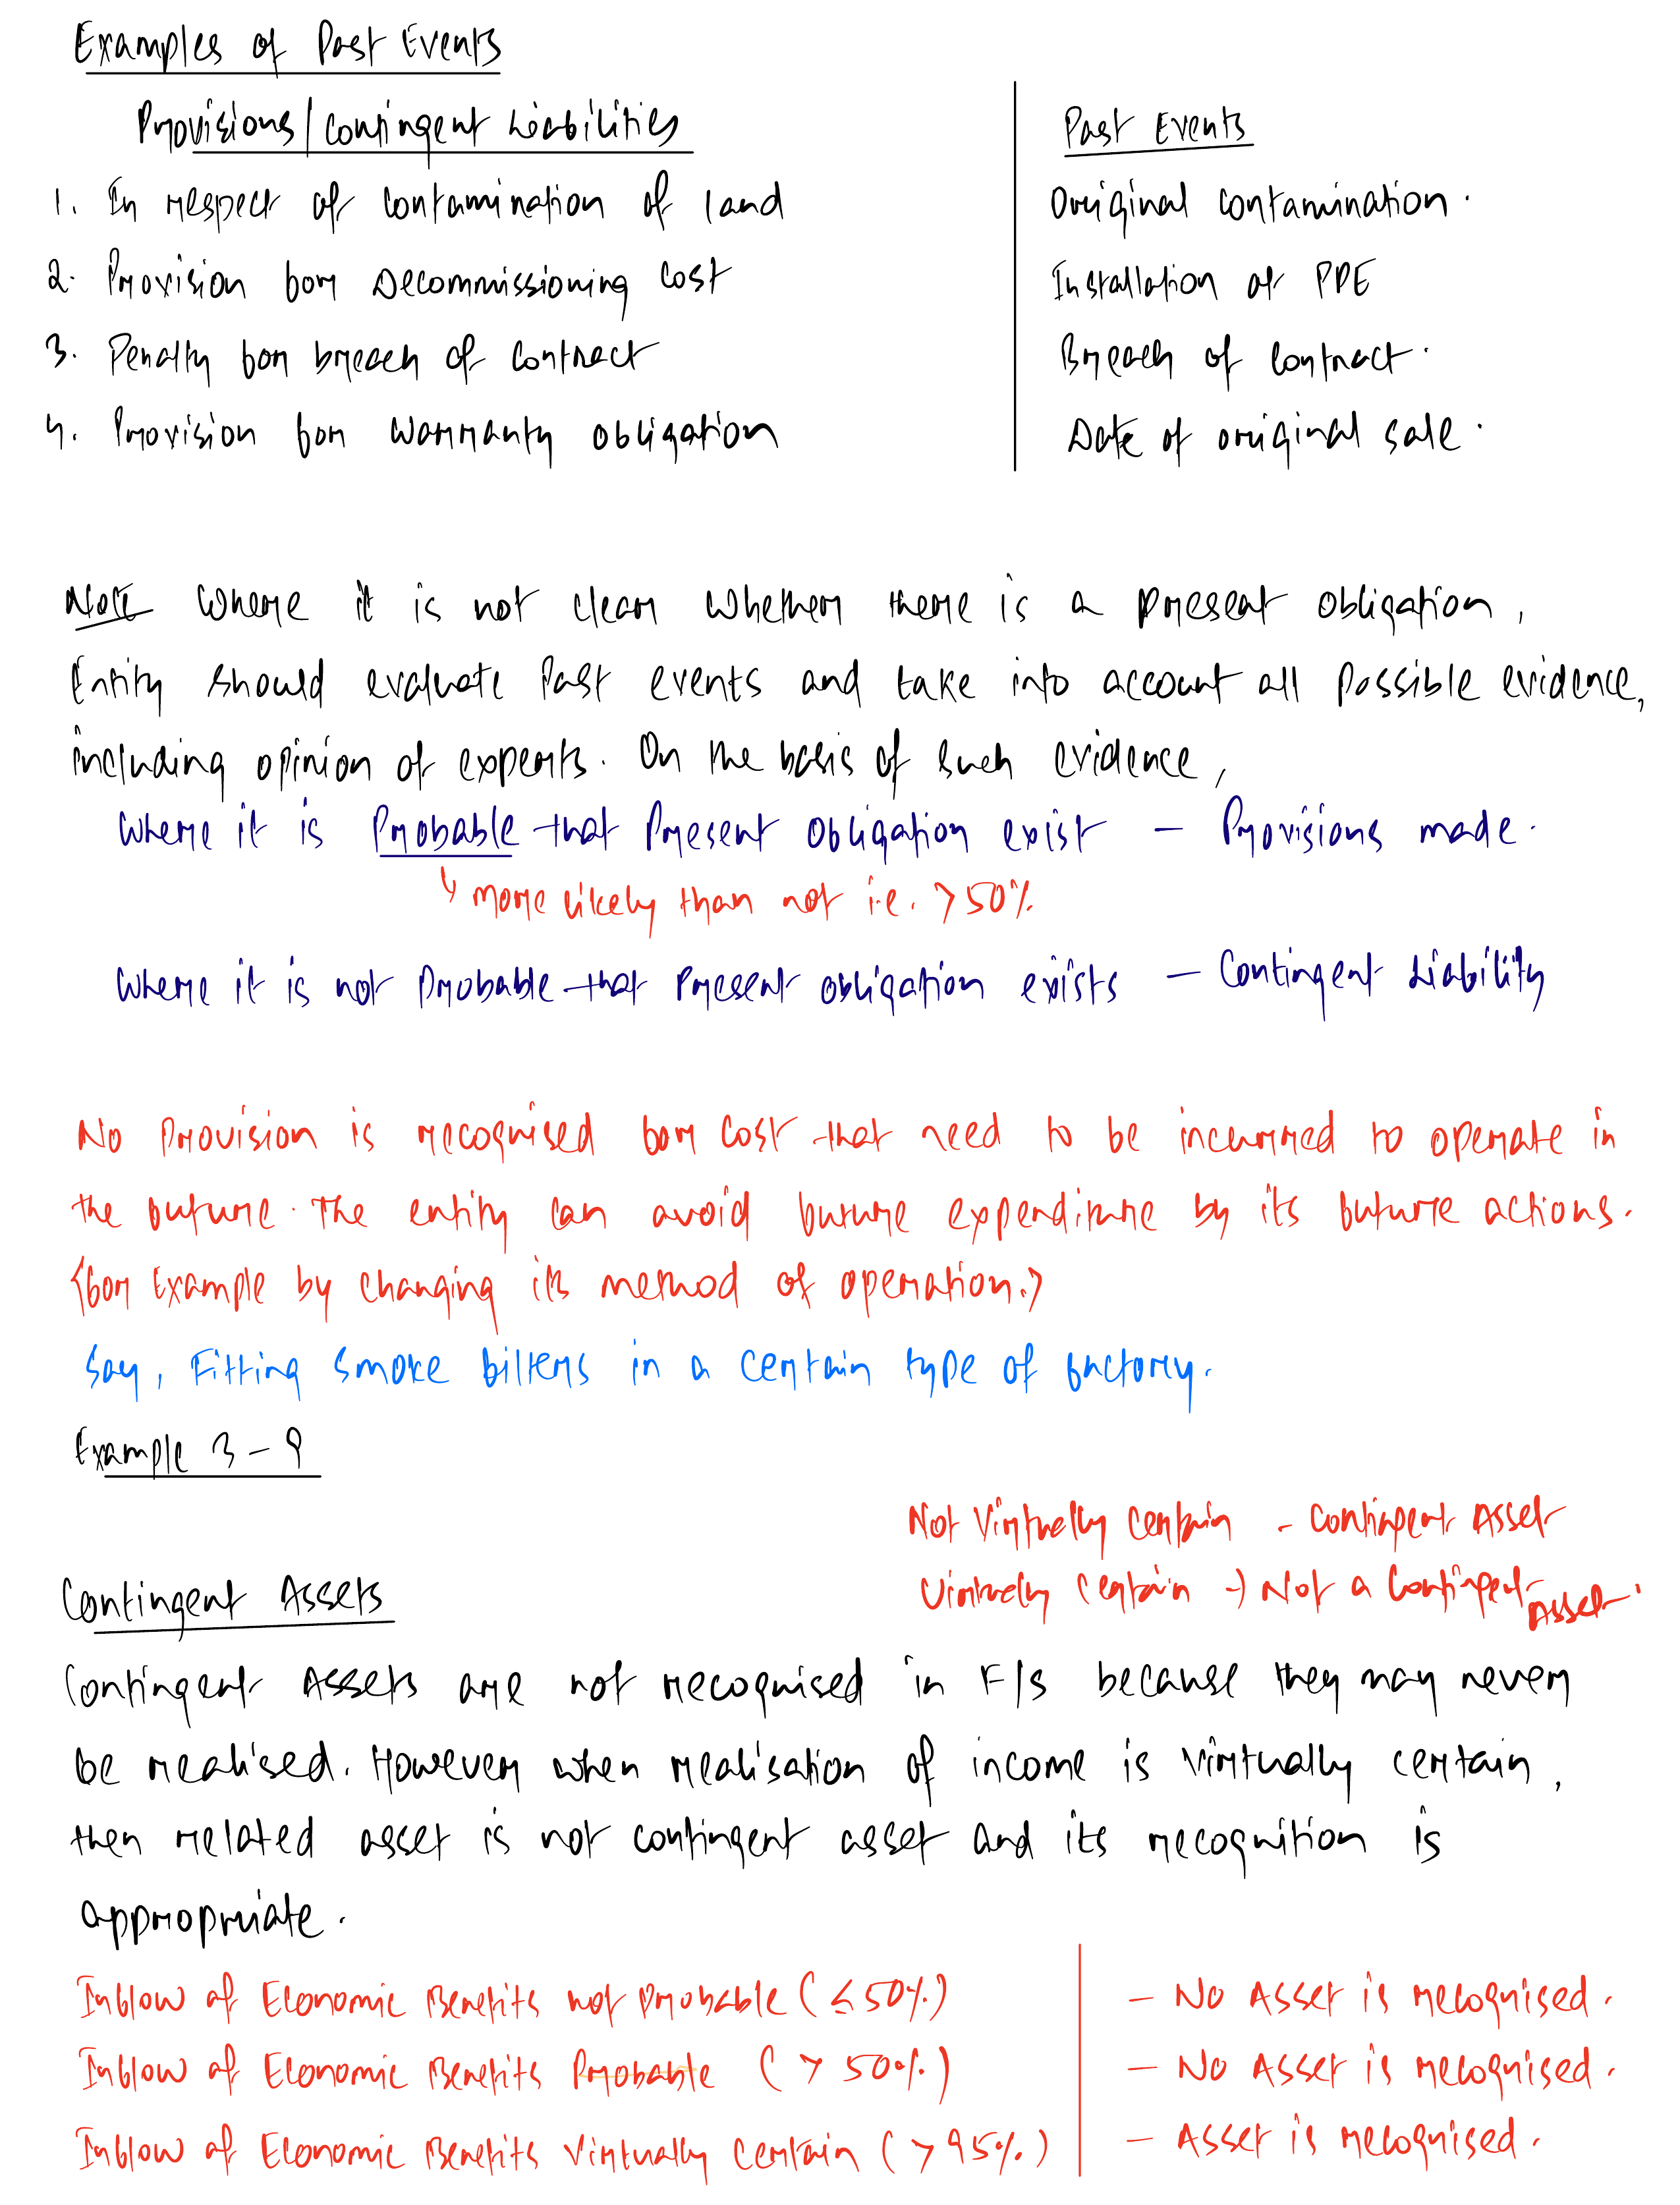 Examples of Past Events
Provisions/Contingent Liabilities
Past Events
1. In respect of contamination of land
Original contamination.
2. Provision for Decommissioning cost
Installation of PPE
3. Penalty for breach of contract
Breach of contract.
4. Provision for warranty obligation
Date of original sale.
Note Where it is not clear whether there is a present obligation,
Entity should evaluate past events and take into account all possible evidence,
including opinion of experts. On the basis of such evidence,
where it is Probable that Present obligation exist – Provisions made.
↳ more likely than not i.e. >50%
where it is not probable that present obligation exists – Contingent Liability
No provision is recognised for cost that need to be incurred to operate in
the future. The entity can avoid future expenditure by its future actions.
{for Example by changing its method of operation.}
Say, Fitting smoke filters in a certain type of factory.
Example 3-9
Not Virtually Certain – Contingent Asset
Virtually Certain → Not a Contingent Asset.
Contingent Assets
Contingent Assets are not recognised in F/s because they may never
be realised. However when realisation of income is virtually certain,
then related asset is not contingent asset and its recognition is
appropriate.
Inflow of Economic Benefits not probable (≤50%)
– No Asset is recognised.
Inflow of Economic Benefits Probable (>50%)
– No Asset is recognised.
Inflow of Economic Benefits Virtually Certain (>95%)
– Asset is recognised.